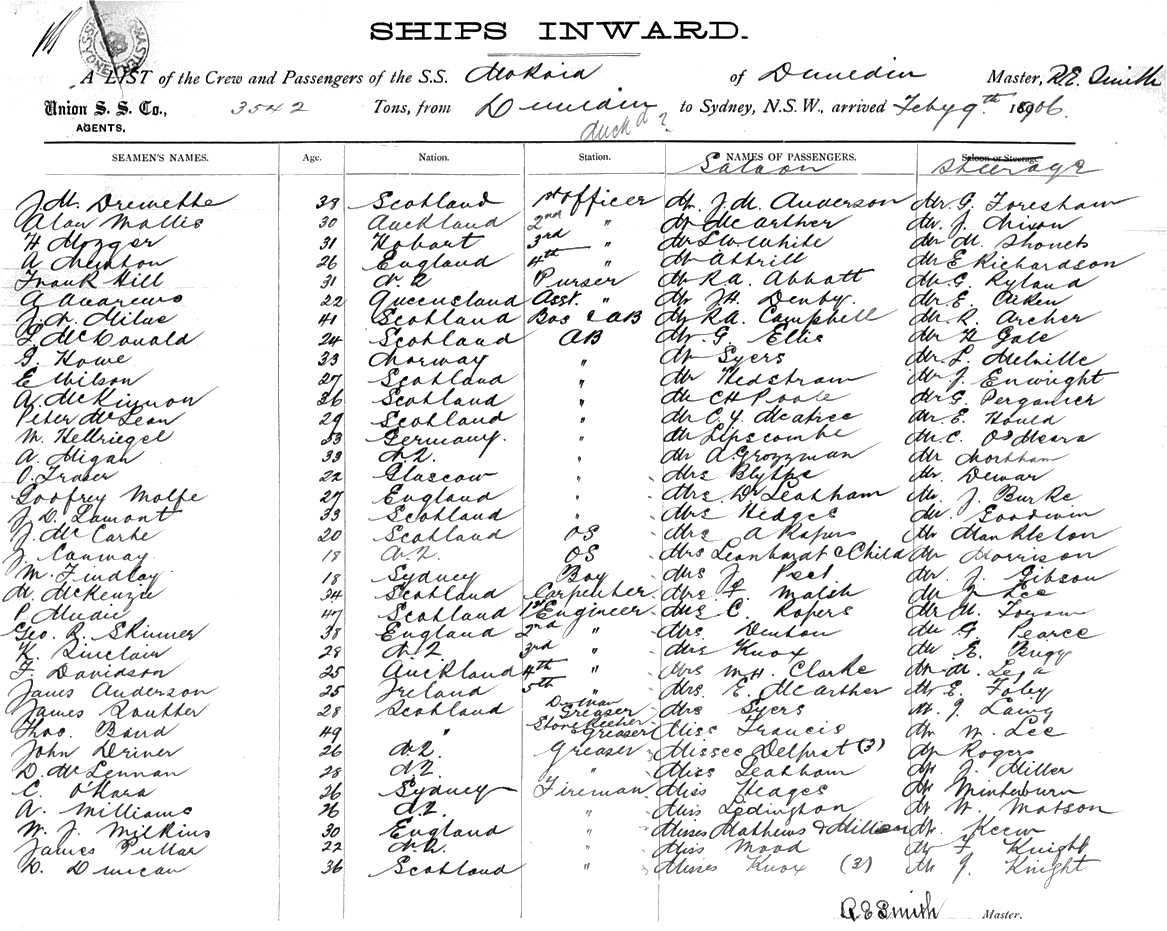 SHIPS INWARD.
A LIST of the Crew and Passengers of the S.S. Mokoia of Dunedin Master, R.E. Smith
Union S. S. Co., 3542 Tons, from Dunedin to Sydney, N.S.W., arrived Feby 9th 1906.
AGENTS.
SEAMEN'S NAMES. Age. Nation. Station. NAMES OF PASSENGERS. Saloon or Steerage
Saloon Steerage
J. M. Drewette 38 Scotland 1st Officer Mr. J. M. Anderson Mr. G. Foresham
Alan Mollis 30 Auckland 2nd " Mr McArther Mr. J. Nixon
H Mogger 31 Hobart 3rd " Mr S W White Mr M. Shonets
A Newton 26 England 4th " Mr Attrill Mr E Richardson
Frank Hill 31 N.Z. Purser Mr R.A. Abbott Mr G. Ryland
A Andrews 22 Queensland Asst. " Mr J.H. Denby. Mr. E. Aiken
J. N. Milne 41 Scotland Bos & AB Mr R.A. Campbell Mr. R. Archer
L McDonald 24 Scotland AB Mr. G. Ellis Mr H Gale
G. Howe 33 Norway " Mr Syers Mr. L. Melville
E Wilson 27 Scotland " Mr Hedstrom Mr J. Enwright
A. McKinnon 36 Scotland " Mr C H Poole Mr G.
Peter McLean 29 Scotland " Mr C. Y. McAtree Mr. E. Hould
M. Hellriegel 53 Germany. " Mr Lipscombe Mr. C. O'Meara
A. Migan 39 N.Z. " Mr A. Grozzman Mr Northam
O. Fraser 22 Glasgow " Mrs Blythe Mr. Dewar
Godfrey Wolfe 27 England " Mrs. Dr Leatham Mr. J. Burke
J. D. Lamont 33 Scotland " Mrs Hedges Mr. Goodwin
J. McCarke 20 Scotland OS Mrs A Rapers Mr Mankleton
J. Conway. 18 N.Z. OS Mrs Leonhardt & Child Mr Morrison
M. Findlay. 18 Sydney Boy Mrs J. Peet Mr. J. Gibson
M. McKenzie 34 Scotland Carpenter Mrs. F. Walsh Mr J Lee
P. Mudie 47 Scotland 1st Engineer Mrs C. Ropers Mr M.
Geo. R. Skinner 38 England 2nd " Mrs. Denton Mr G. Pearce
K. Sinclair 28 N.Z 3rd " Mrs Knox Mr E. Bugg
F. Davidson 25 Auckland 4th " Mrs M.H. Clarke Mr M.
James Anderson 25 Ireland 5th " Mrs. E. McArther Mr E. Foley
James Soutter 28 Scotland Greaser Mrs Syers Mr. J. Laing
Thos. Baird 49 " Storekeeper & Greaser Miss Francis Mr M. Lee
John Driner 26 N.Z. Greaser Misses Delprat (3) Mr Rogers
D. McLennan 28 N.Z. " Miss Leatham Mr J. Miller
C. O'Hara 26 Sydney Fireman Miss Hedges Mr Winterburn
A. Williams 26 N.Z. " Miss Ledington Mr W. Matson
W. J. Wilkins 30 England " Misses Mathews & Millson Mr. Keen
James Pullar 22 N.Z. " Miss Wood Mr F. Knight
D. Duncan 36 Scotland " Misses Knox (3) Mr J. Knight
R E Smith Master.